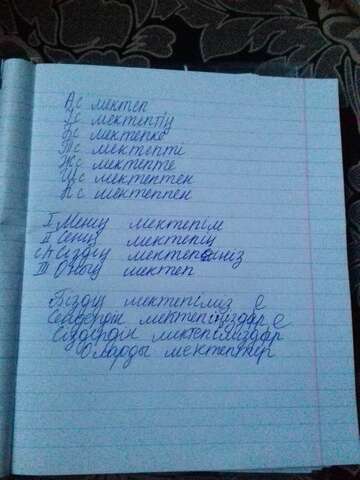 Ас мектеп
Іс мектептің
Бс мектепке
Тс мектепті
Жс мектепте
Шс мектептен
Кс мектеппен
I Менің мектепім
II Сенің мектепің
СП Сіздің мектепіңіз
III Оның мектеп
Біздің мектепіміз
Сендердің мектепіңіздар
Сіздердің мектепіміздәр
Оларды мектептер